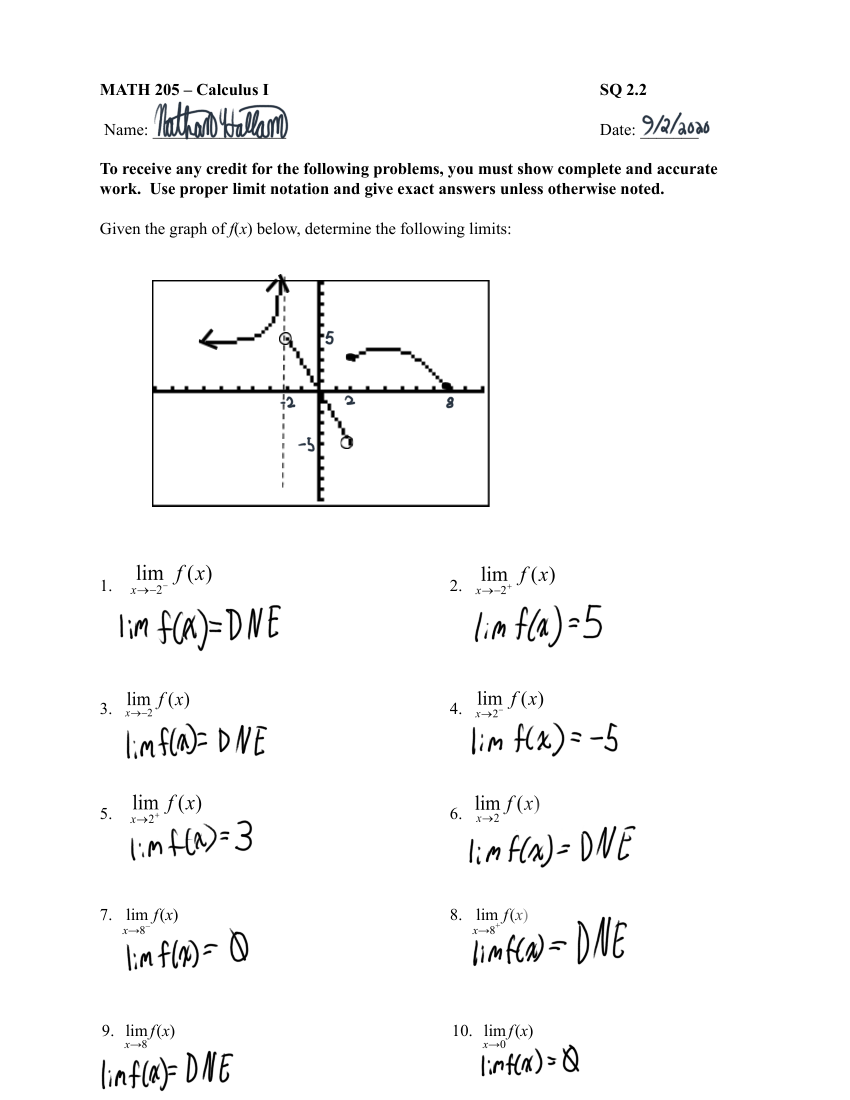 MATH 205 – Calculus I SQ 2.2
Name: Nathan Hallam Date: 9/2/2020
To receive any credit for the following problems, you must show complete and accurate
work. Use proper limit notation and give exact answers unless otherwise noted.
Given the graph of f(x) below, determine the following limits:
5
-2 2 8
-5
1. lim f(x) 2. lim f(x)
x→−2⁻ x→−2⁺
lim f(x)=DNE lim f(x)=5
3. lim f(x) 4. lim f(x)
x→−2 x→2⁻
lim f(x)= DNE lim f(x)=-5
5. lim f(x) 6. lim f(x)
x→2⁺ x→2
lim f(x)=3 lim f(x)= DNE
7. lim f(x) 8. lim f(x)
x→8⁻ x→8⁺
lim f(x)= 0 lim f(x)= DNE
9. lim f(x) 10. lim f(x)
x→8 x→0
lim f(x)= DNE lim f(x)=0